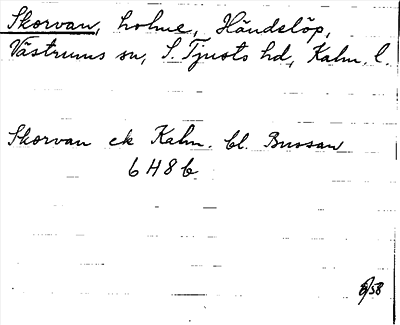 Skorvan, holme, Händelöp,
Västrums sn, S. Tjusts hd, Kalm. l.
Skorvan ek Kalm. bl. Bussan
6 H 8 b
8/58